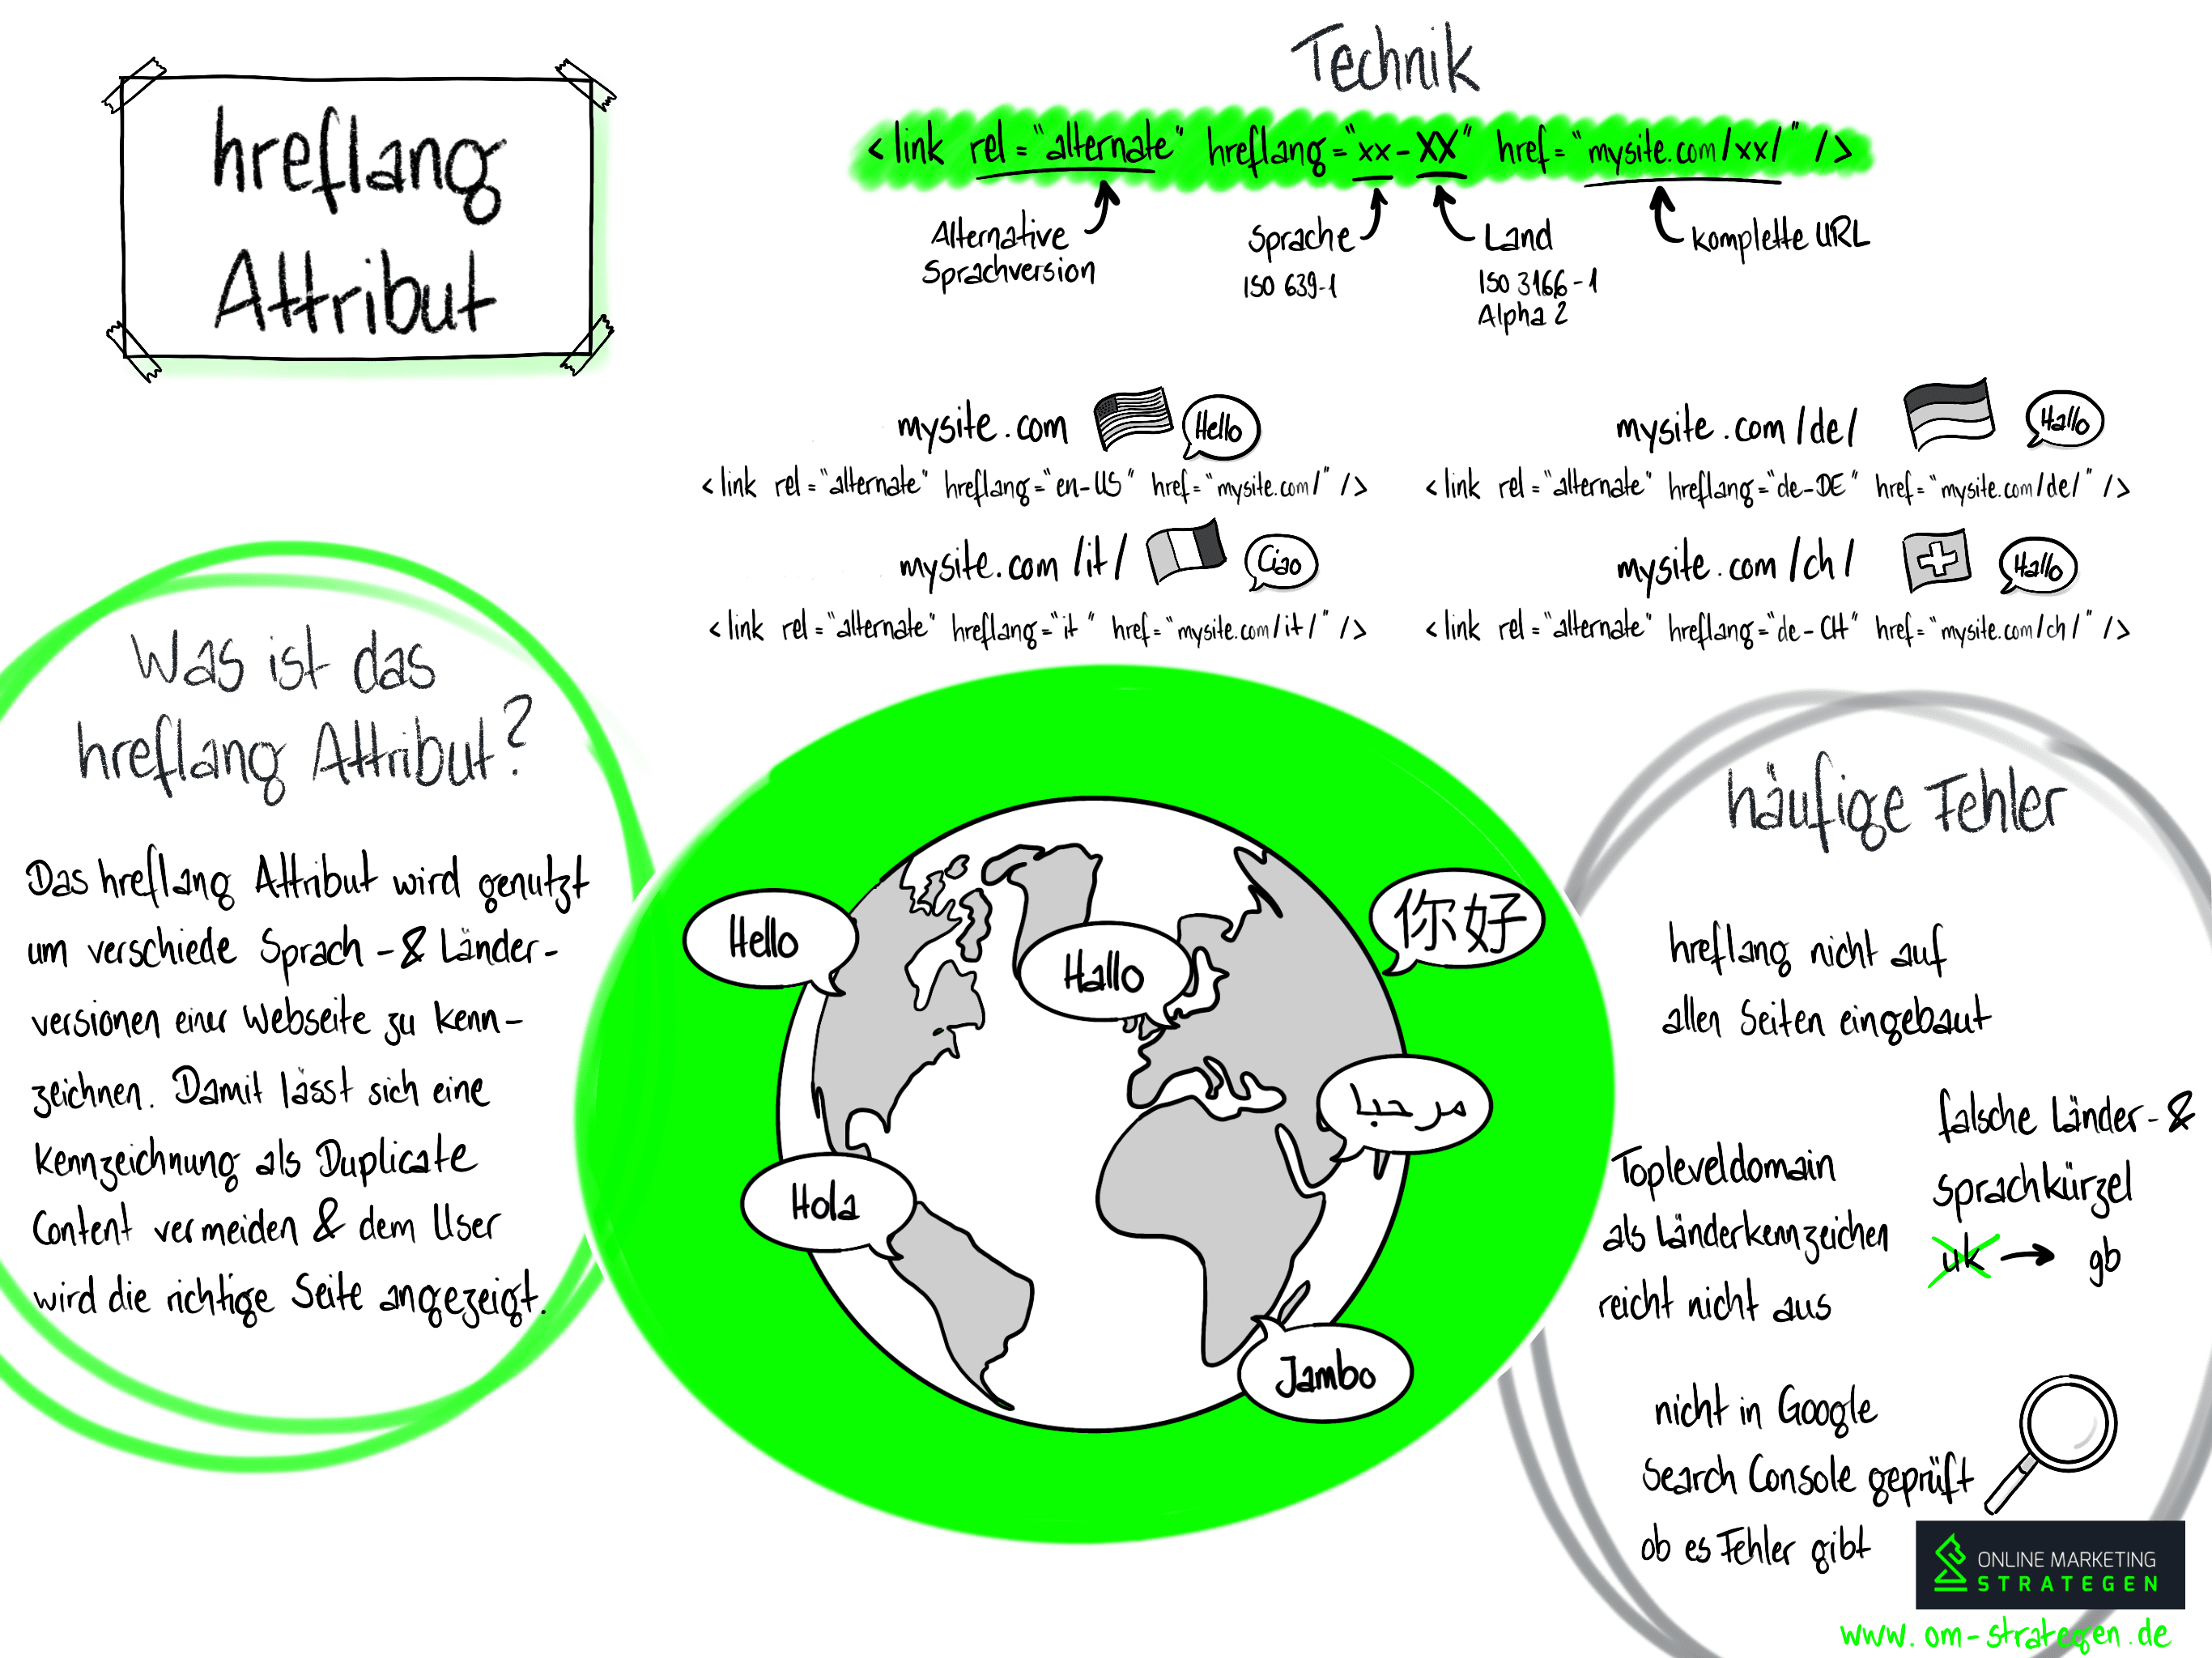 hreflang
Attribut
Technik
<link rel="alternate" hreflang="xx-XX" href="mysite.com/xx/" />
Alternative
Sprachversion
Sprache
ISO 639-1
Land
ISO 3166-1
Alpha 2
komplette URL
mysite.com
Hello
<link rel="alternate" hreflang="en-US" href="mysite.com/" />
mysite.com/de/
Hallo
<link rel="alternate" hreflang="de-DE" href="mysite.com/de/" />
mysite.com/it/
Ciao
<link rel="alternate" hreflang="it" href="mysite.com/it/" />
mysite.com/ch/
Hallo
<link rel="alternate" hreflang="de-CH" href="mysite.com/ch/" />
Was ist das
hreflang Attribut?
Das hreflang Attribut wird genutzt
um verschiede Sprach-& Länder-
versionen einer Webseite zu kenn-
zeichnen. Damit lässt sich eine
Kennzeichnung als Duplicate
Content vermeiden & dem User
wird die richtige Seite angezeigt.
Hello
Hallo
你好
مرحبا
Hola
Jambo
häufige Fehler
hreflang nicht auf
allen Seiten eingebaut
falsche Länder-&
Sprachkürzel
uk → gb
Topleveldomain
als Länderkennzeichen
reicht nicht aus
nicht in Google
Search Console geprüft
ob es Fehler gibt
ONLINE MARKETING
STRATEGEN
www.om-strategen.de